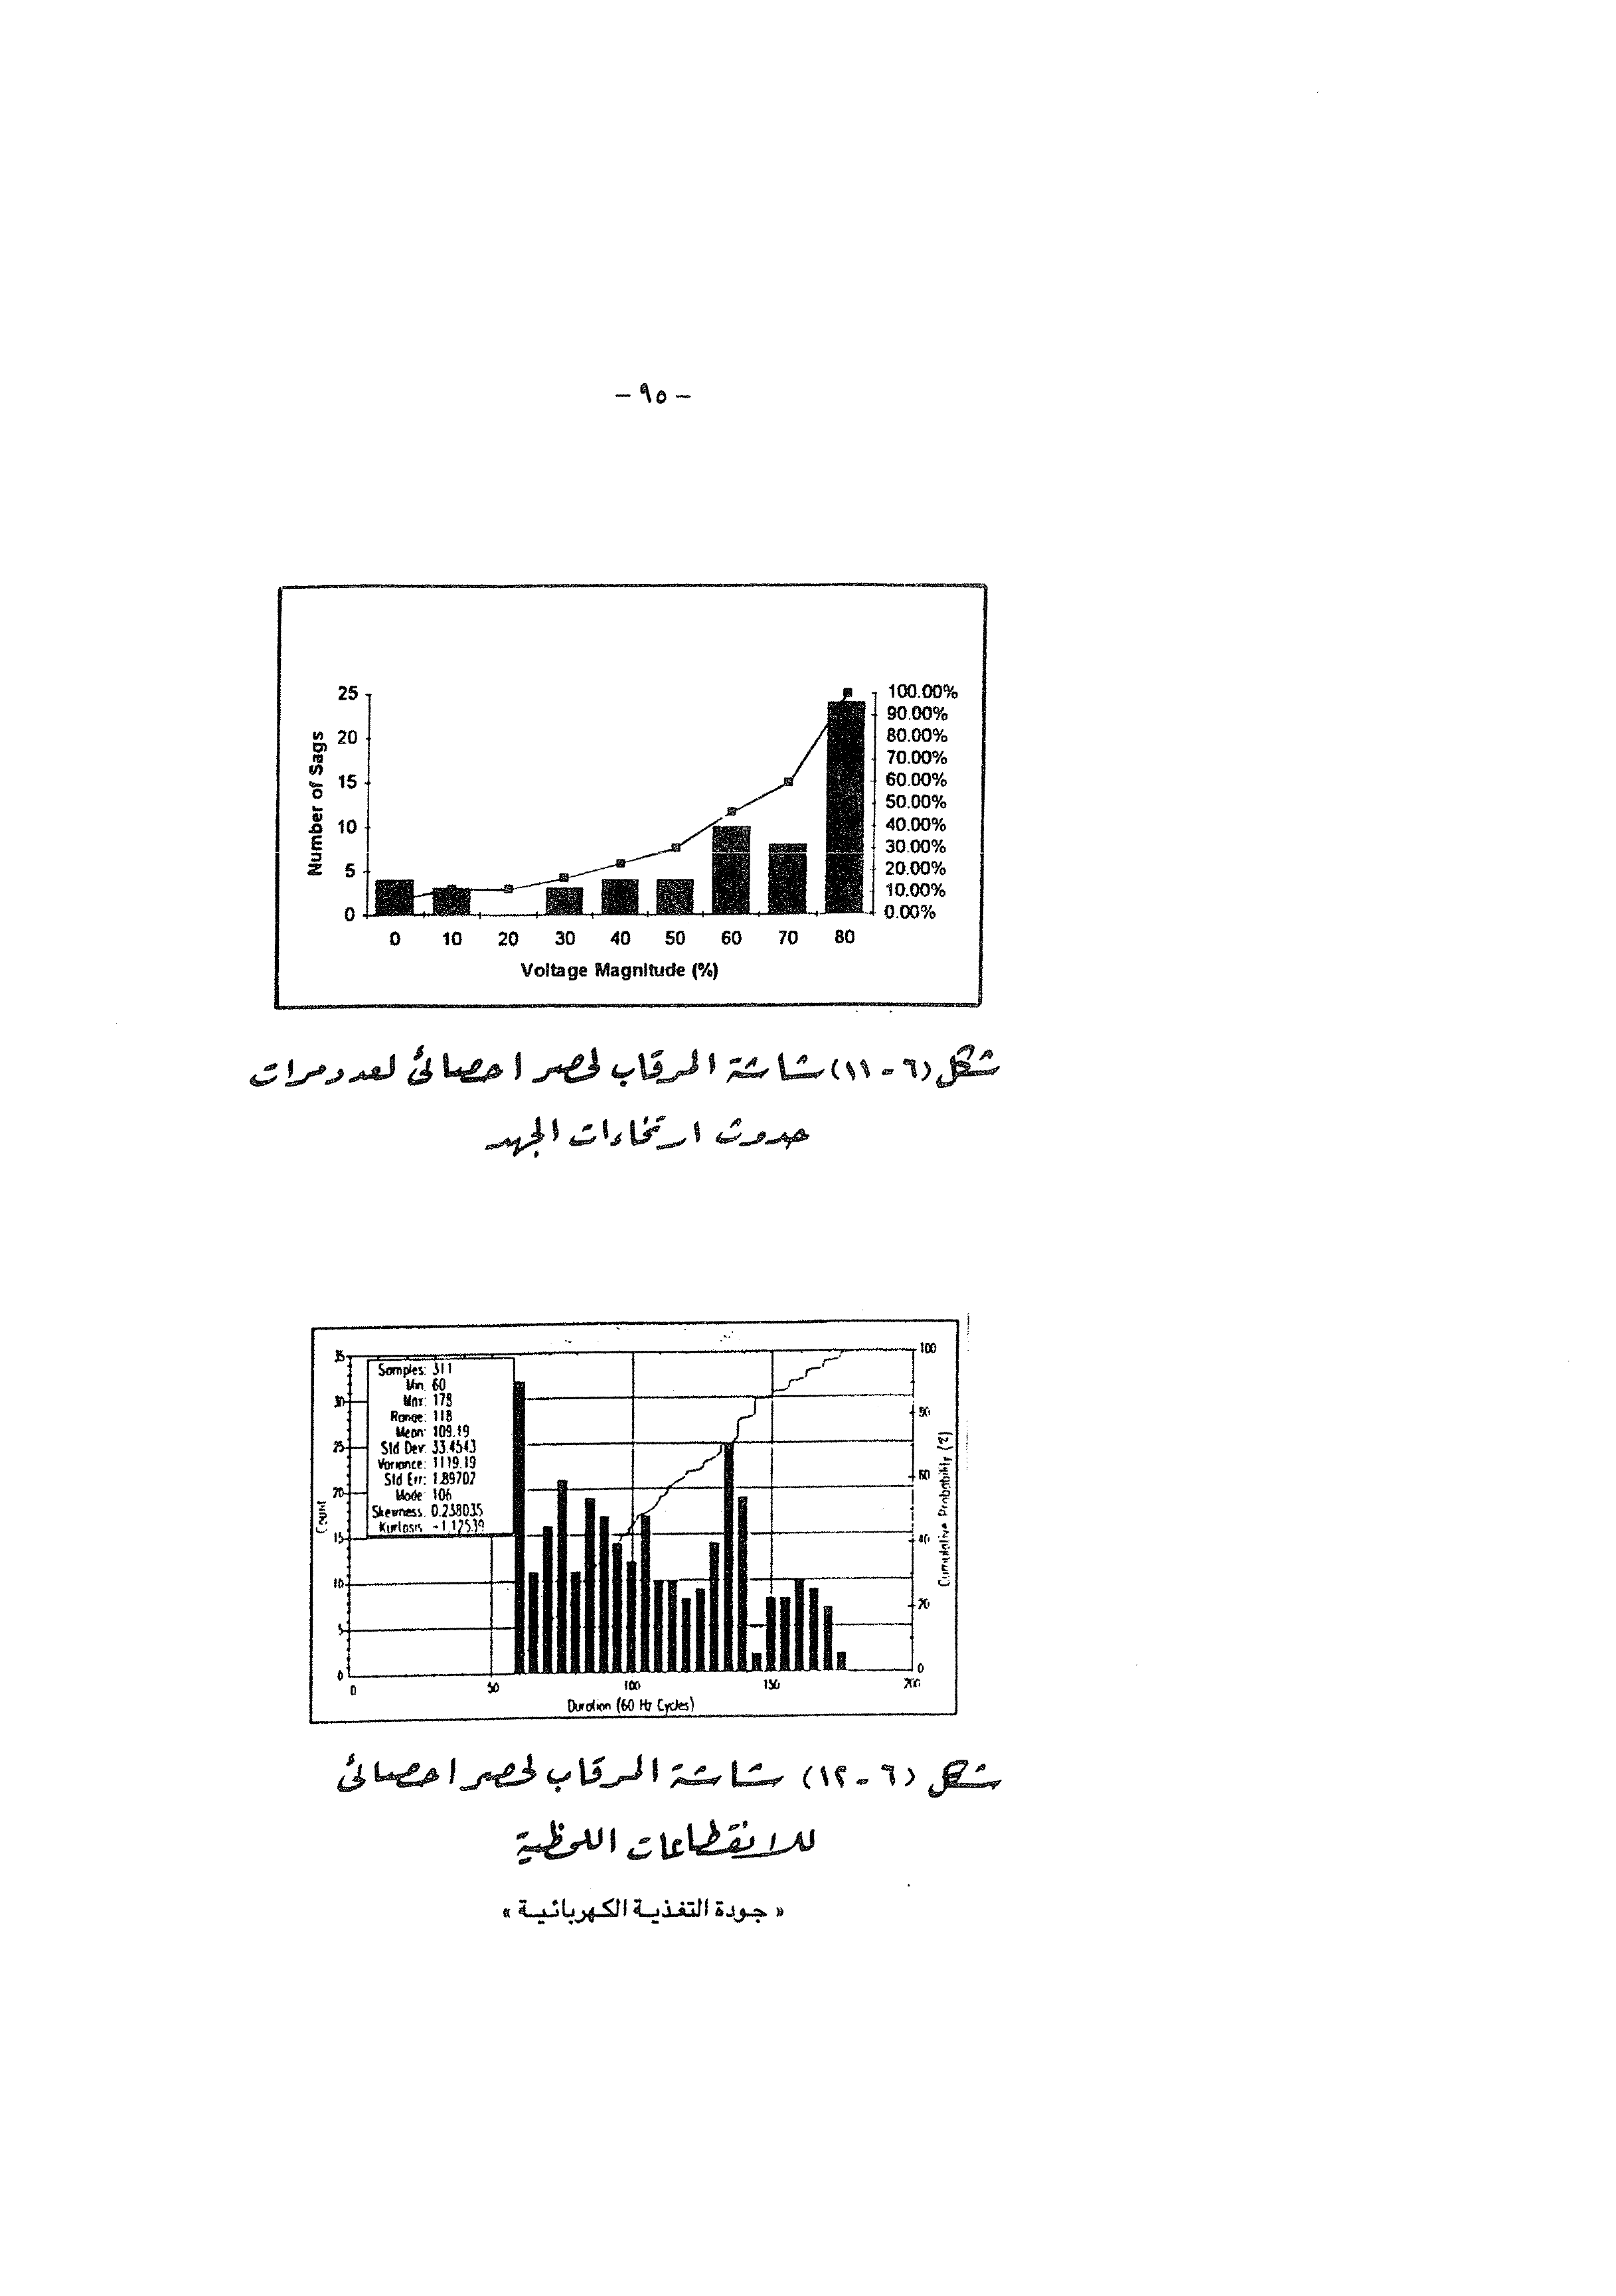 - ٩٥ -
25
20
15
10
5
0
Number of Sags
100.00%
90.00%
80.00%
70.00%
60.00%
50.00%
40.00%
30.00%
20.00%
10.00%
0.00%
0 10 20 30 40 50 60 70 80
Voltage Magnitude (%)
شكل (٦-١١) شاشة المرقاب لحصر احصائى لعدد مرات
حدوث ارتخاءات الجهد
35
30
25
20
15
10
5
0
Count
Samples: 311
Min: 60
Max: 178
Range: 118
Mean: 109.19
Std Dev: 33.4543
Variance: 1119.19
Std Err: 1.89702
Mode: 106
Skewness: 0.238035
Kurtosis: -1.12539
100
80
60
40
20
0
Cumulative Probability (%)
0 50 100 150 200
Duration (60 Hz Cycles)
شكل (٦-١٢) شاشة المرقاب لحصر احصائى
للانقطاعات اللحظية
« جودة التغذية الكهربائية »